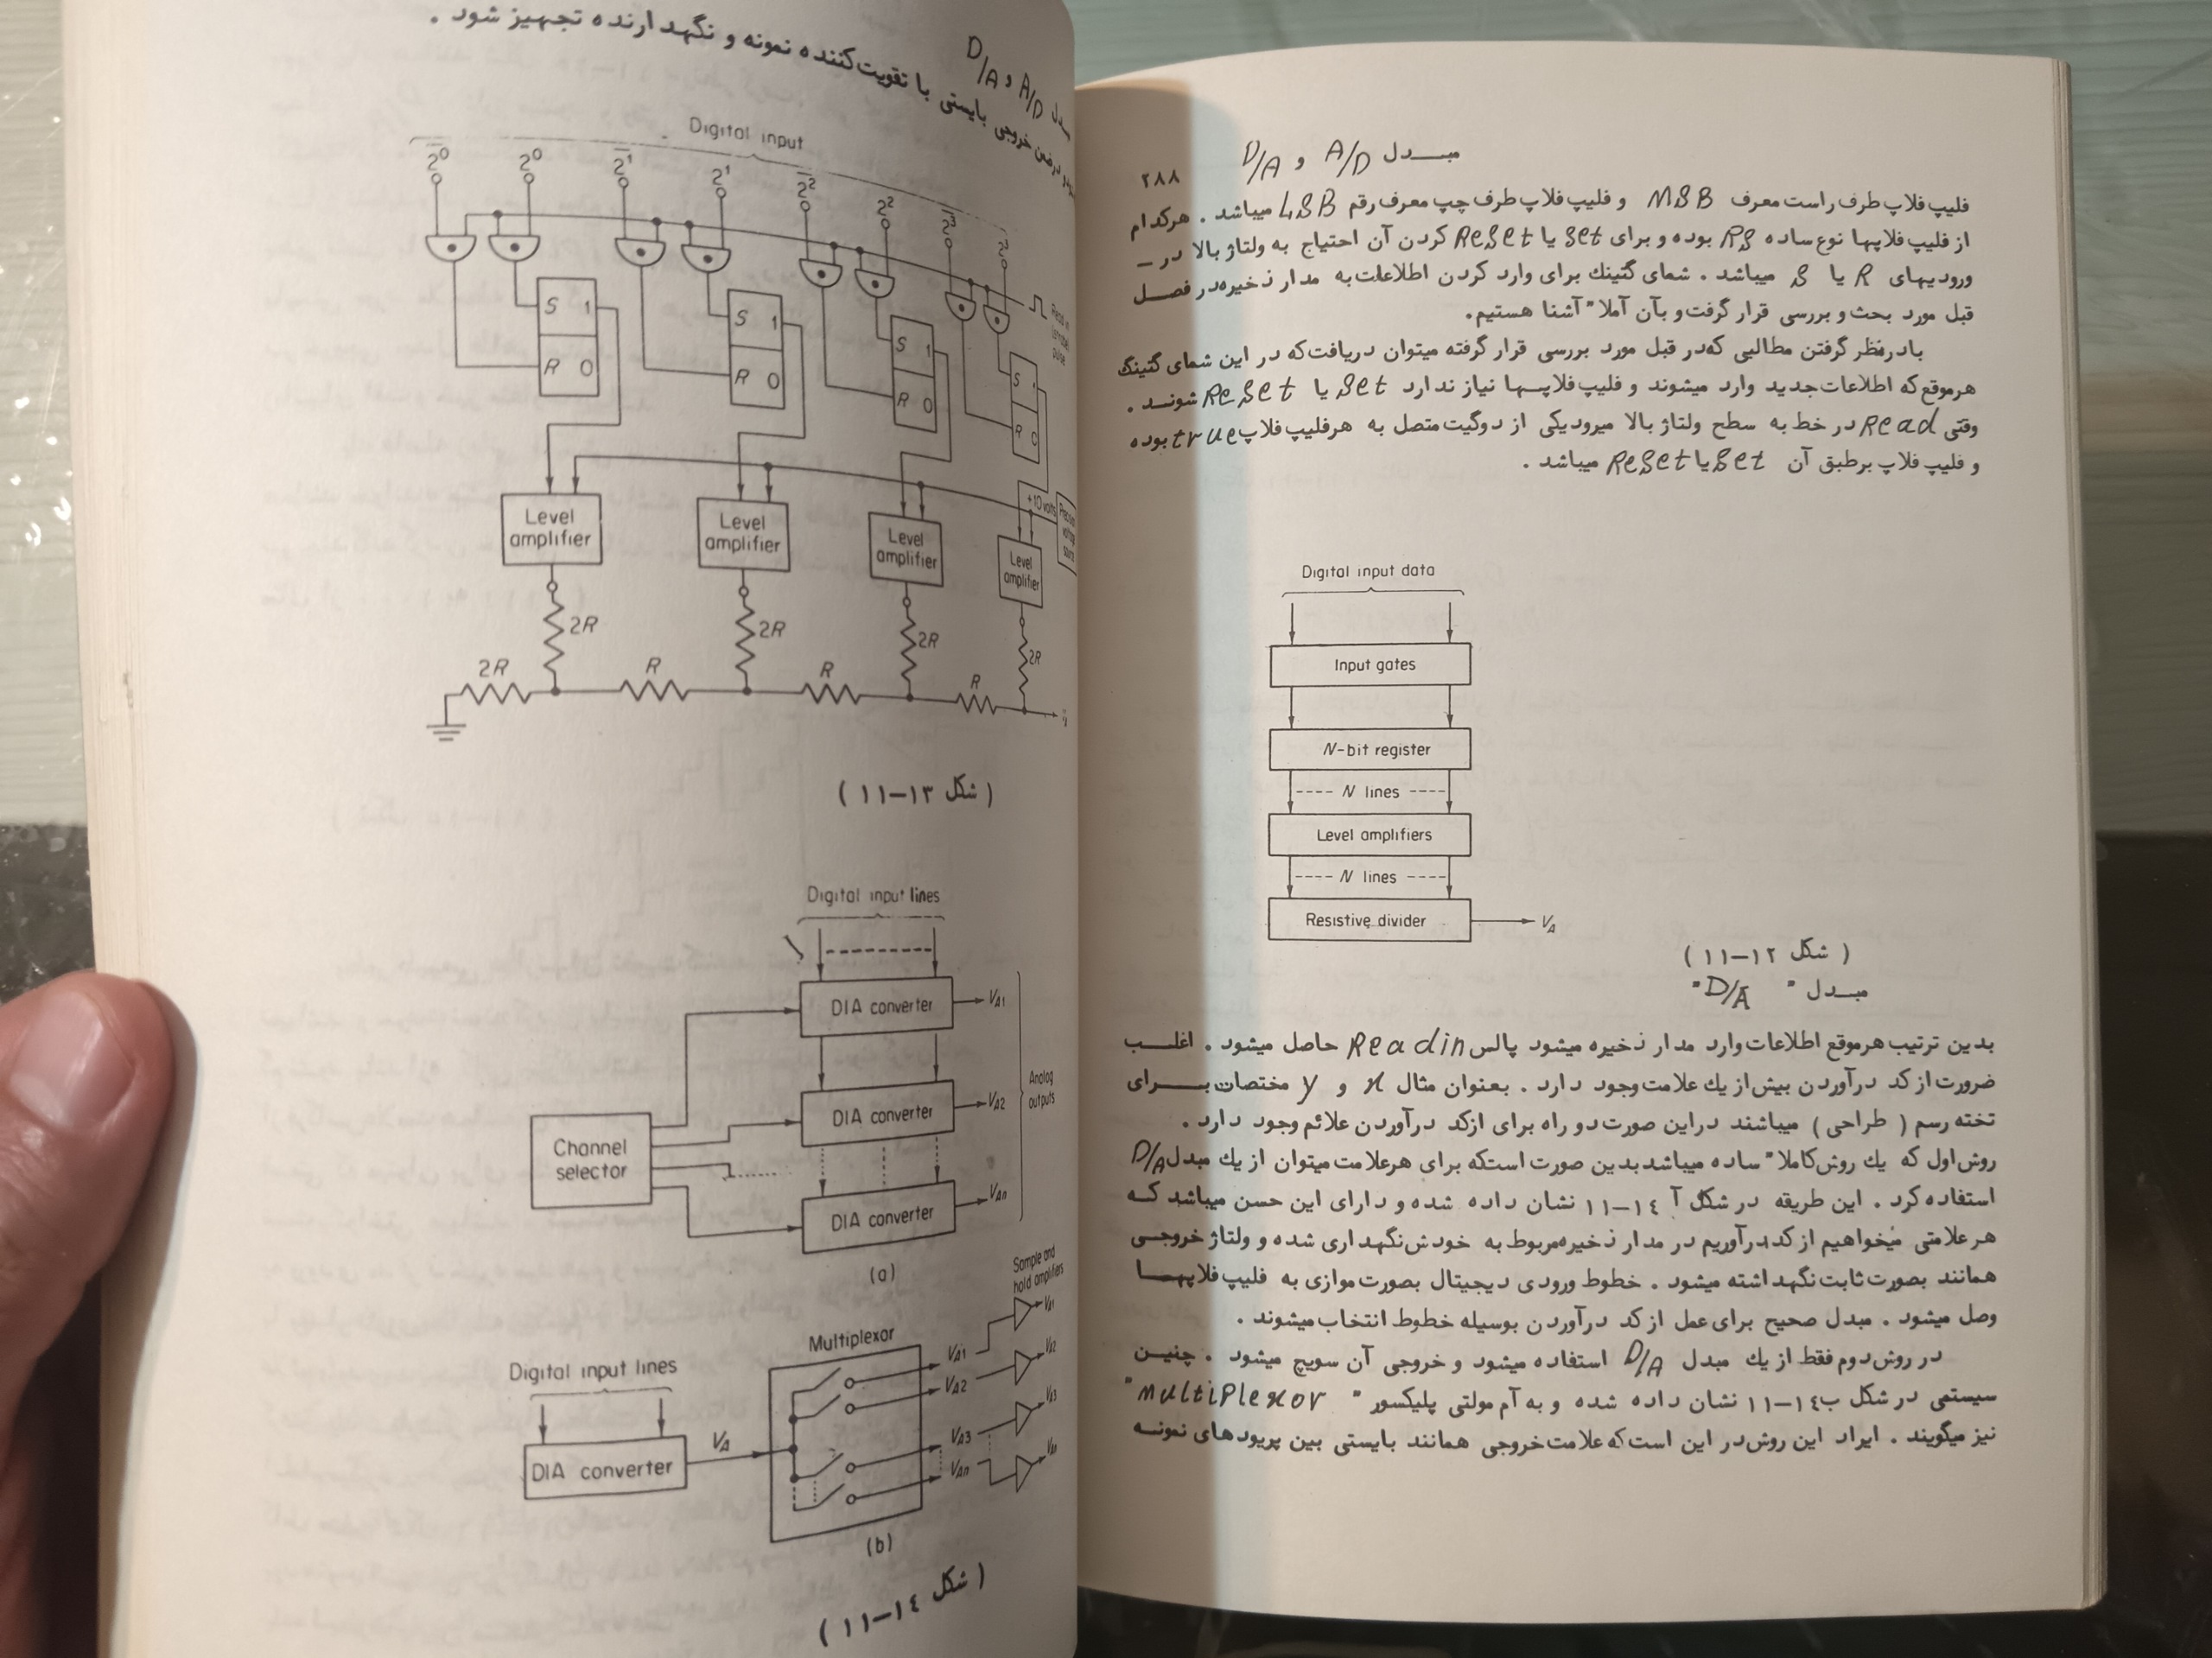 مبدل A/D و D/A
۲۸۸
فلیپ فلاپ طرف راست معرف MSB و فلیپ فلاپ طرف چپ معرف رقم LSB میباشد . هرکدام
از فلیپ فلاپها نوع ساده RS بوده و برای set یا Reset کردن آن احتیاج به ولتاژ بالا در –
ورودیهای R یا S میباشد . شمای گتینك برای وارد کردن اطلاعات به مدار ذخیره در فصل
قبل مورد بحث و بررسی قرار گرفت و بآن آملا" آشنا هستیم.
بادرنظر گرفتن مطالبی که در قبل مورد بررسی قرار گرفته میتوان دریافت که در این شمای گتینگ
هرموقع که اطلاعات جدید وارد میشوند و فلیپ فلاپها نیاز ندارد Set یا Reset شوند .
وقتی Read در خط به سطح ولتاژ بالا میرود یکی از دوگیت متصل به هرفلیپ فلاپ true بوده
و فلیپ فلاپ برطبق آن Set یا Reset میباشد .
Digital input data
Input gates
N-bit register
N lines
Level amplifiers
N lines
Resistive divider
VA
( شکل ۱۲–۱۱ )
مبدل " D/A "
بدین ترتیب هرموقع اطلاعات وارد مدار ذخیره میشود پالس Readin حاصل میشود . اغلب
ضرورت از کد درآوردن بیش از یك علامت وجود دارد . بعنوان مثال x و y مختصات برای
تخته رسم ( طراحی ) میباشند دراین صورت دو راه برای ازکد درآوردن علائم وجود دارد .
روش اول که یك روش کاملا" ساده میباشد بدین صورت است که برای هرعلامت میتوان از یك مبدل D/A
استفاده کرد . این طریقه در شکل آ ۱٤–۱۱ نشان داده شده و دارای این حسن میباشد که
هرعلامتی میخواهیم از کد درآوریم در مدار ذخیره مربوط به خودش نگهداری شده و ولتاژ خروجی
همانند بصورت ثابت نگهداشته میشود . خطوط ورودی دیجیتال بصورت موازی به فلیپ فلاپها
وصل میشود . مبدل صحیح برای عمل از کد درآوردن بوسیله خطوط انتخاب میشوند .
در روش دوم فقط از یك مبدل D/A استفاده میشود و خروجی آن سویچ میشود . چنین
سیستمی در شکل ب ۱٤–۱۱ نشان داده شده و به آم مولتی پلیکسور " multiplexor "
نیز میگویند . ایراد این روش در این است که علامت خروجی همانند بایستی بین پریودهای نمونه
مبدل A/D و D/A
خروجی بایستی با تقویت کننده نمونه و نگهدارنده تجهیز شود .
Digital input
2̅⁰ 2⁰ 2̅¹ 2¹ 2̅² 2² 2̅³ 2³
Read in
pulse
S 1
R 0
S 1
R 0
S 1
R 0
S 1
R 0
+10 volts
Precision
voltage
source
Level
amplifier
Level
amplifier
Level
amplifier
Level
amplifier
2R 2R 2R 2R
2R R R R
( شکل ۱۳–۱۱ )
Digital input lines
DIA converter
VA1
DIA converter
VA2
DIA converter
VAn
Analog
outputs
Channel
selector
(a)
Sample and
hold amplifiers
Multiplexor
Digital input lines
DIA converter
VA
VA1 VA1
VA2 VA2
VA3 VA3
VAn VAn
(b)
( شکل ۱٤–۱۱ )